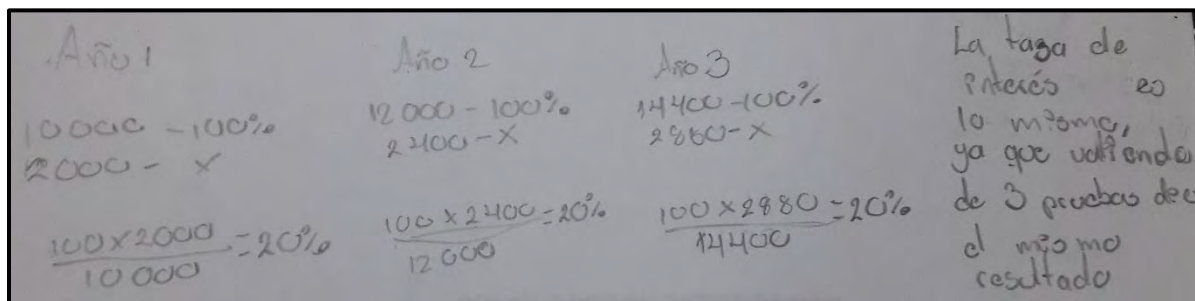 Año 1
10000 - 100%
2000 - x
100 x 2000 = 20%
10 000
Año 2
12 000 - 100%
2400 - x
100 x 2400 = 20%
12 000
Año 3
14400 - 100%
2880 - x
100 x 2880 = 20%
14400
La taga de
interés es
la misma,
ya que
de 3 pruebas
el mismo
resultado